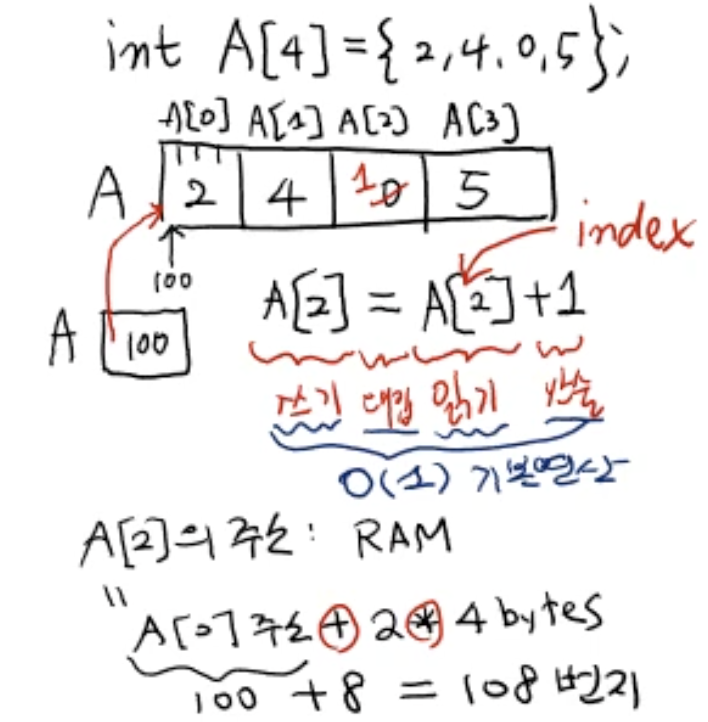 int A[4]={2,4,0,5};
A[0] A[1] A[2] A[3]
A 2 4 1 0 5
index
100
A[2] = A[2]+1
A 100
쓰기 대입 읽기 산술
O(1) 기본연산
A[2]의 주소: RAM
"
A[0] 주소 + 2 * 4 bytes
100 + 8 = 108 번지